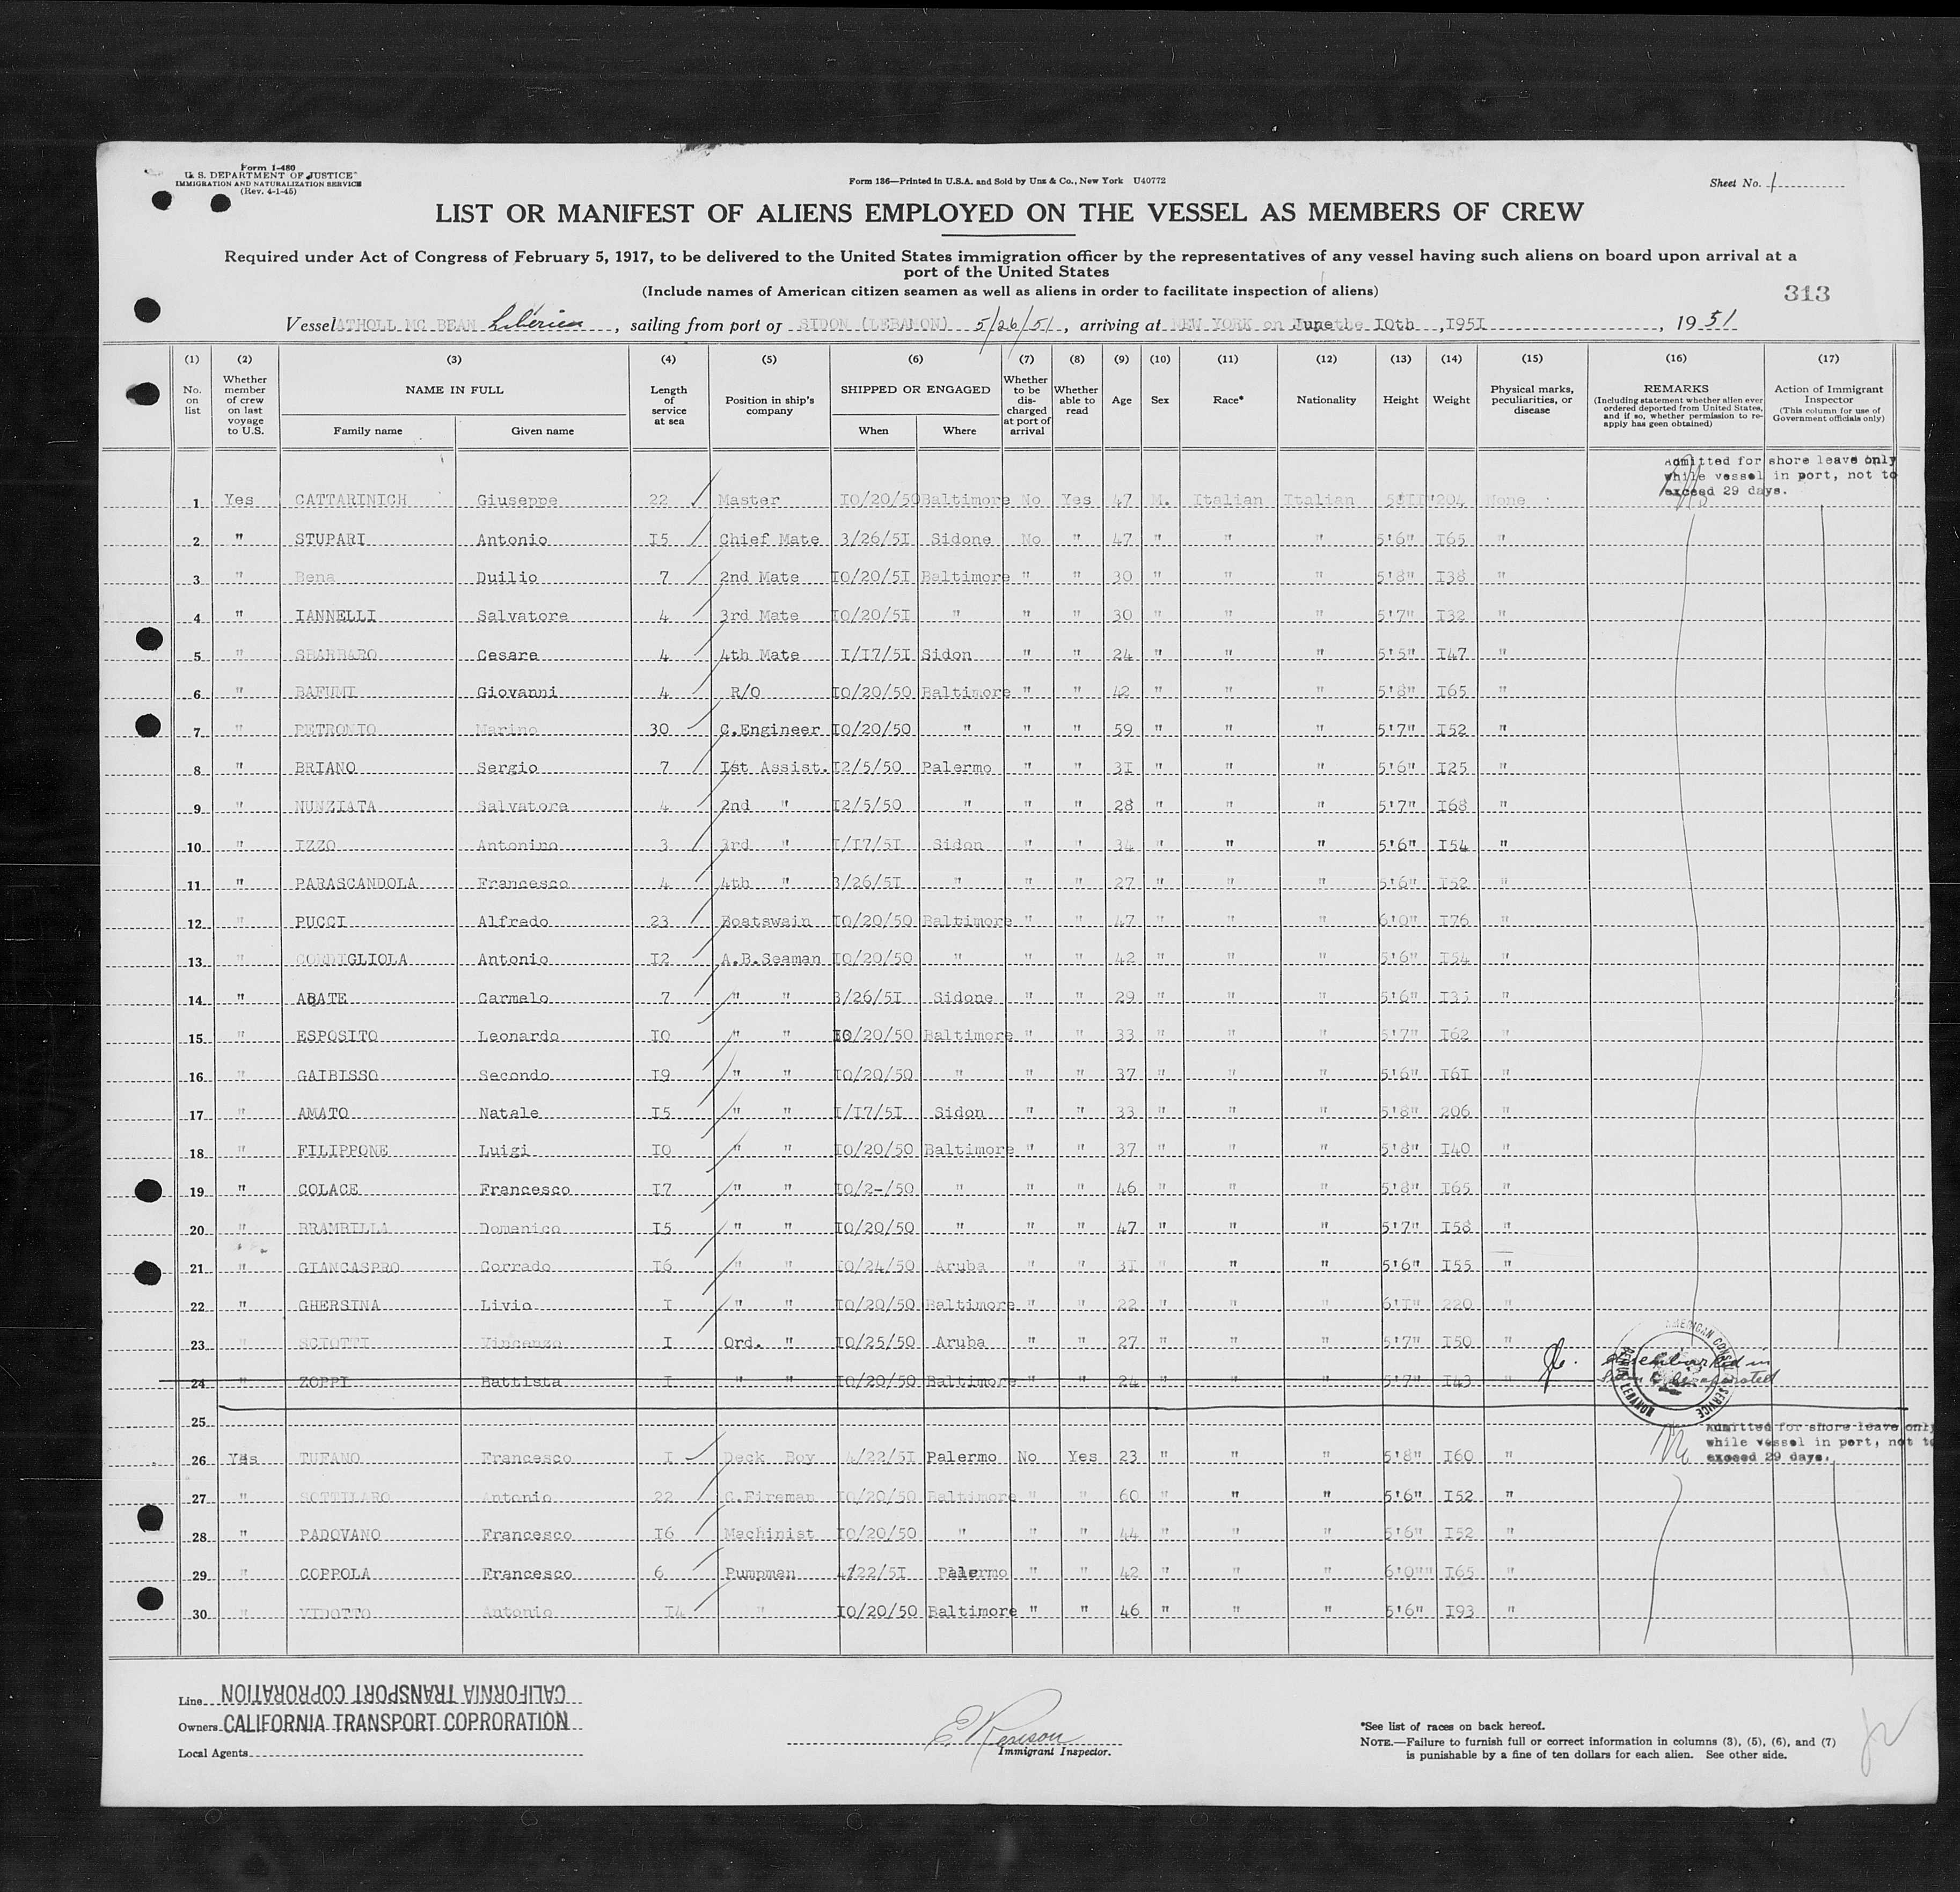 Form 1-480
U. S. DEPARTMENT OF JUSTICE
IMMIGRATION AND NATURALIZATION SERVICE
(Rev. 4-1-45)
Form 136—Printed in U.S.A. and Sold by Unz & Co., New York U40772
Sheet No. 1
LIST OR MANIFEST OF ALIENS EMPLOYED ON THE VESSEL AS MEMBERS OF CREW
Required under Act of Congress of February 5, 1917, to be delivered to the United States immigration officer by the representatives of any vessel having such aliens on board upon arrival at a
port of the United States
(Include names of American citizen seamen as well as aliens in order to facilitate inspection of aliens)
313
Vessel ATHOLL MC BEAN Liberian, sailing from port of SIDON (LEBANON) 5/26/51, arriving at NEW YORK on June the I0th ,I95I, 1951
(1) (2) (3) (4) (5) (6) (7) (8) (9) (10) (11) (12) (13) (14) (15) (16) (17)
No. on list Whether member of crew on last voyage to U.S. NAME IN FULL Family name Given name Length of service at sea Position in ship's company SHIPPED OR ENGAGED When Where Whether to be discharged at port of arrival Whether able to read Age Sex Race* Nationality Height Weight Physical marks, peculiarities, or disease REMARKS (Including statement whether alien ever ordered deported from United States, and if so, whether permission to re-apply has geen obtained) Action of Immigrant Inspector (This column for use of Government officials only)
Admitted for shore leave only
while vessel in port, not to
exceed 29 days.
1 Yes CATTARINICH Giuseppe 22 Master I0/20/50 Baltimore No Yes 47 M. Italian Italian 5'II" 204 None
2 " STUPARI Antonio I5 Chief Mate 3/26/5I Sidone No " 47 " " " 5'6" I65 "
3 " Bena Duilio 7 2nd Mate I0/20/5I Baltimore " " 30 " " " 5'8" I38 "
4 " IANNELLI Salvatore 4 3rd Mate I0/20/5I " " " 30 " " " 5'7" I32 "
5 " SBARBARO Cesare 4 4th Mate I/I7/5I Sidon " " 24 " " " 5'5" I47 "
6 " BAFUMI Giovanni 4 R/O I0/20/50 Baltimore " " 42 " " " 5'8" I65 "
7 " PETRONIO Marino 30 C.Engineer I0/20/50 " " " 59 " " " 5'7" I52 "
8 " BRIANO Sergio 7 Ist Assist. I2/5/50 Palermo " " 3I " " " 5'6" I25 "
9 " NUNZIATA Salvatore 4 2nd " I2/5/50 " " " 28 " " " 5'7" I68 "
10 " IZZO Antonino 3 3rd " I/I7/5I Sidon " " 34 " " " 5'6" I54 "
11 " PARASCANDOLA Francesco 4 4th " 3/26/5I " " " 27 " " " 5'6" I52 "
12 " PUCCI Alfredo 23 Boatswain I0/20/50 Baltimore " " 47 " " " 6'0" I76 "
13 " CORDIGLIOLA Antonio I2 A.B.Seaman I0/20/50 " " " 42 " " " 5'6" I54 "
14 " ABATE Carmelo 7 " " 3/26/5I Sidone " " 29 " " " 5'6" "
15 " ESPOSITO Leonardo I0 " " I0/20/50 Baltimore " " 33 " " " 5'7" I62 "
16 " GAIBISSO Secondo I9 " " I0/20/50 " " " 37 " " " 5'6" I6I "
17 " AMATO Natale I5 " " I/I7/5I Sidon " " 33 " " " 5'8" 206 "
18 " FILIPPONE Luigi I0 " " I0/20/50 Baltimore " " 37 " " " 5'8" I40 "
19 " COLACE Francesco I7 " " I0/2-/50 " " " 46 " " " 5'8" I65 "
20 " BRAMBILLA Domenico I5 " " I0/20/50 " " " 47 " " " 5'7" I58 "
21 " GIANCASPRO Corrado I6 " " I0/24/50 Aruba " " 3I " " " 5'6" I55 "
22 " GHERSINA Livio I " " I0/20/50 Baltimore " " 22 " " " 6'I" 220 "
23 " SCIOTTI Vincenzo I Ord. " I0/25/50 Aruba " " 27 " " " 5'7" I50 "
24 " ZOPPI Battista I " " I0/20/50 Baltimore " " 24 " " " 5'7" I43 "
AMERICAN CONSULAR SERVICE
25
Admitted for shore leave only
while vessel in port, not to
exceed 29 days.
26 Yes TUFANO Francesco I Deck Boy 4/22/5I Palermo No Yes 23 " " " 5'8" I60 "
27 " SOTTILARO Antonio 22 C.Fireman I0/20/50 Baltimore " " 60 " " " 5'6" I52 "
28 " PADOVANO Francesco I6 Machinist I0/20/50 " " " 44 " " " 5'6" I52 "
29 " COPPOLA Francesco 6 Pumpman 4/22/5I Palermo " " 42 " " " 6'0" I65 "
30 " VIDOTTO Antonio I4 " I0/20/50 Baltimore " " 46 " " " 5'6" I93 "
Line CALIFORNIA TRANSPORT COPRORATION
Owners CALIFORNIA TRANSPORT COPRORATION
Local Agents
Immigrant Inspector.
*See list of races on back hereof.
NOTE.—Failure to furnish full or correct information in columns (3), (5), (6), and (7)
is punishable by a fine of ten dollars for each alien. See other side.